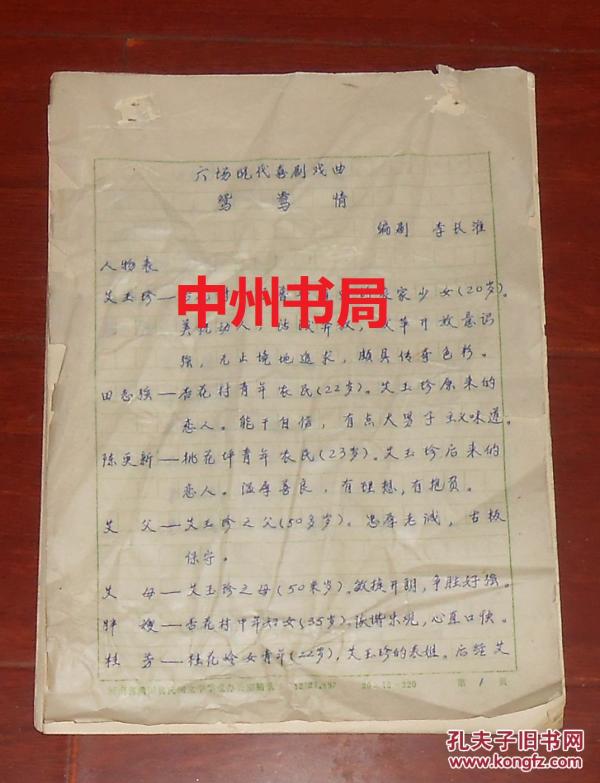 六场现代喜剧戏曲
鸳鸯情
编剧 李长淮
人物表
艾玉珍— 家少女(20岁)。
美貌动人, 改革开放意识
强,无止境地追求,颇具传奇色彩。
田志强—杏花村青年农民(22岁)。艾玉珍原来的
恋人。能干自信,有点大男子主义味道。
陈更新—桃花坪青年农民(23岁)。艾玉珍后来的
恋人。温厚善良,有理想,有抱负。
艾父—艾玉珍之父(50多岁)。忠厚老诚,古板
保守。
艾母—艾玉珍之母(50来岁)。敏捷开朗,争胜好强。
胖嫂—杏花村中年妇女(35岁)。诙谐乐观,心直口快。
桂芳—桂花岭女青年(22岁),艾玉珍的表姐。后经艾
20×16=320 第1页
中州书局
孔夫子旧书网
www.kongfz.com